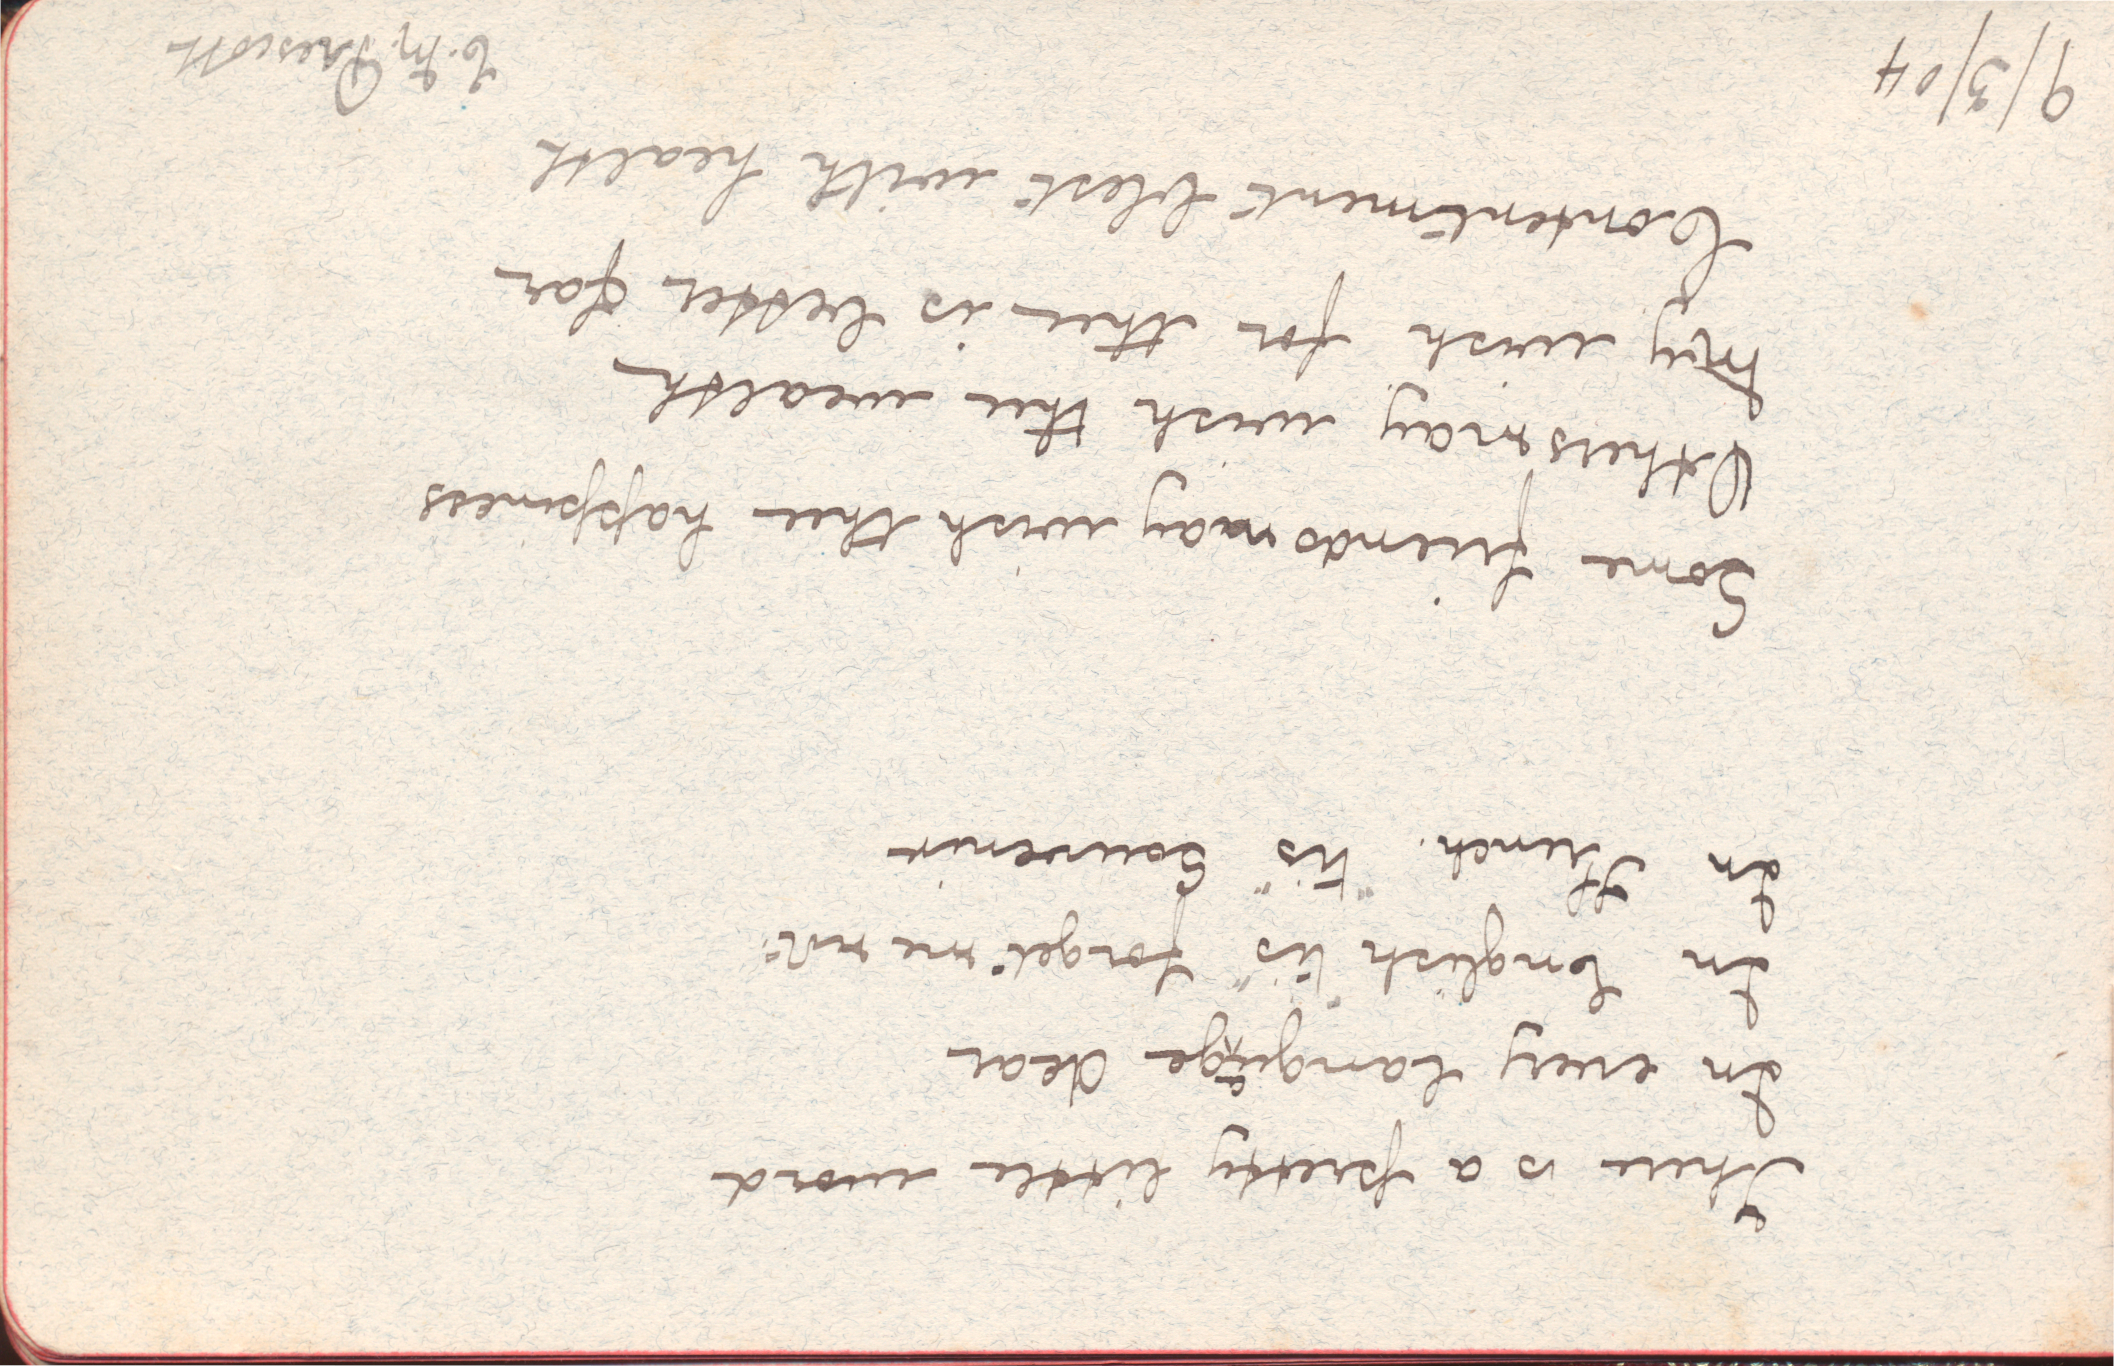 There is a pretty little word
In every language dear
In English 'tis "forget me not"
In French. 'tis "Souvenir
Some friends may wish thee happiness
Others may wish thee wealth
My wish for thee is better far
Contentment blest with health
9/3/04
E. M. Prescott